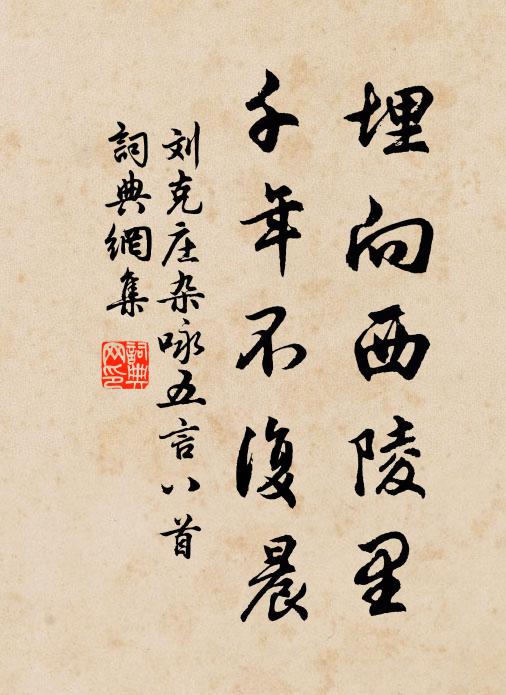 埋向西陵里
千年不復晨
刘克庄杂咏五言八首
詞典網集
詞典網印